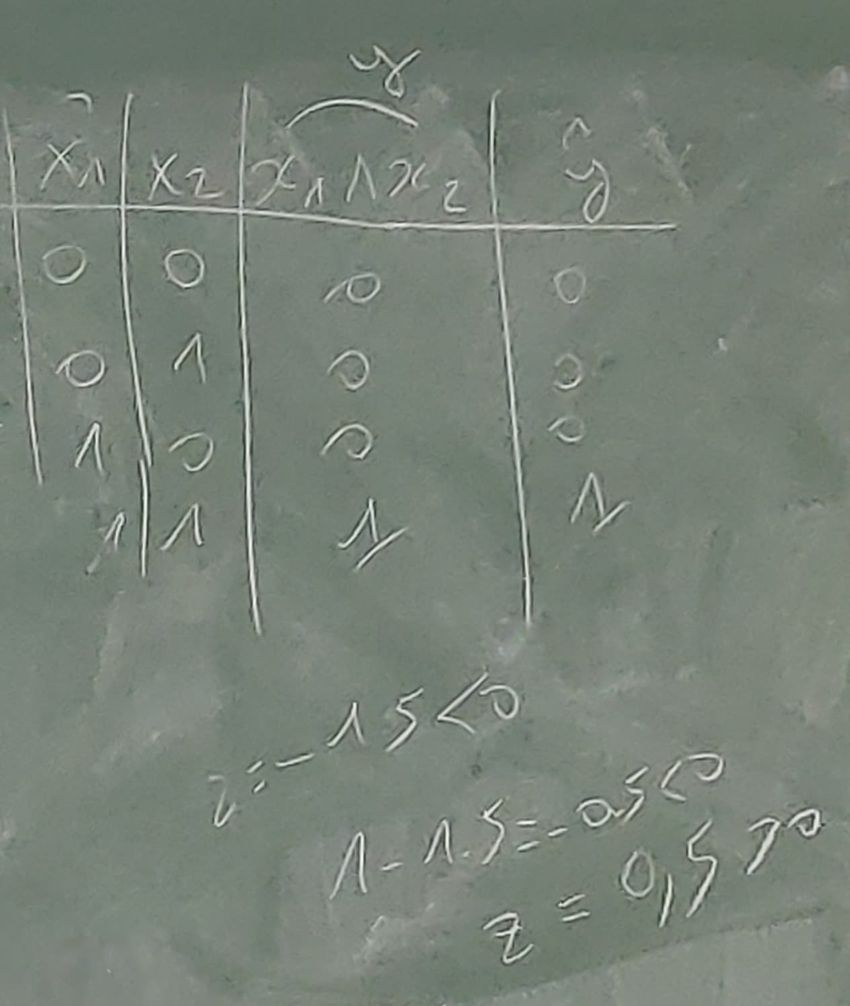 y
x₁ | x₂ | x₁ ∧ x₂ | ŷ
0 | 0 | 0 | 0
0 | 1 | 0 | 0
1 | 0 | 0 | 0
1 | 1 | 1 | 1
z = -1 5 < 0
1 - 1.5 = -0,5 < 0
z = 0,5 > 0